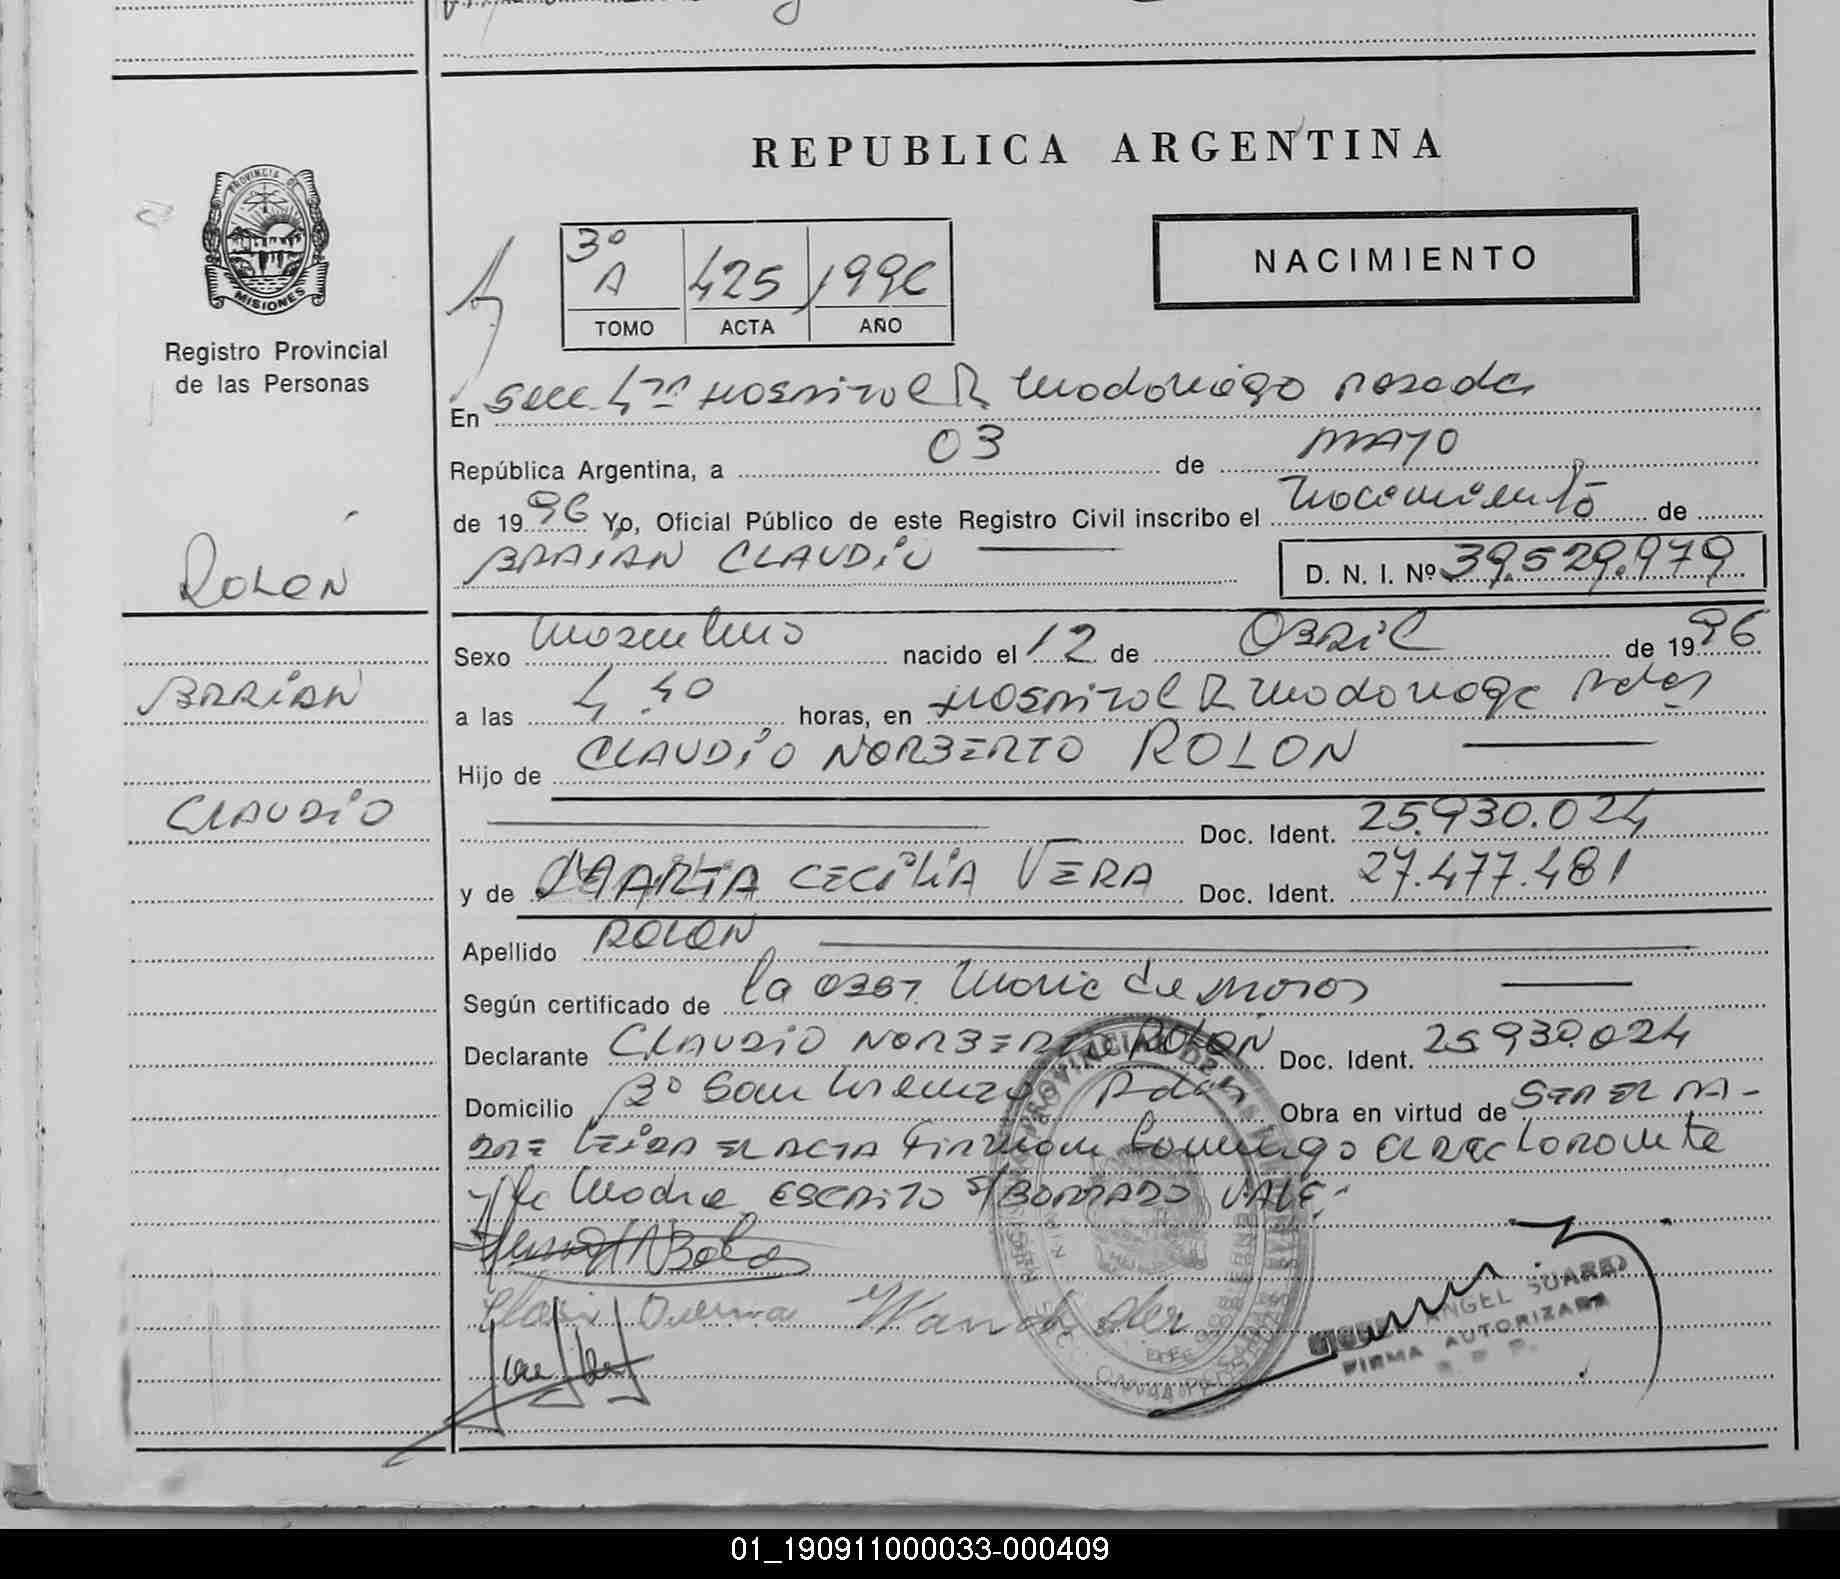 REPUBLICA ARGENTINA
PROVINCIA DE
MISIONES
Registro Provincial
de las Personas
NACIMIENTO
3º
A 425 1996
TOMO ACTA AÑO
En Secc 4ta Hospital R Madariaga Posadas
República Argentina, a 03 de MAYO
de 1996 Yo, Oficial Público de este Registro Civil inscribo el Nacimiento de
BRAIAN CLAUDIO D. N. I. Nº 39.529.979
ROLON
Sexo Masculino nacido el 12 de ABRIL de 1996
BRAIAN
a las 4.40 horas, en Hospital R Madariaga Pdas
Hijo de CLAUDIO NORBERTO ROLON
CLAUDIO
Doc. Ident. 25.930.024
y de MARTA CECILIA VERA Doc. Ident. 27.477.481
Apellido ROLON
Según certificado de la obst. Maria de
Declarante CLAUDIO NORBERTO ROLON Doc. Ident. 25.930.024
Domicilio Bº San Lorenzo Pdas Obra en virtud de SER EL PA-
DRE LEIDA EL ACTA FIRMAN conmigo el declarante
y la Madre ESCRITO S/BORRADO VALE.-
ANGEL SUAREZ
FIRMA AUTORIZADA
01_190911000033-000409